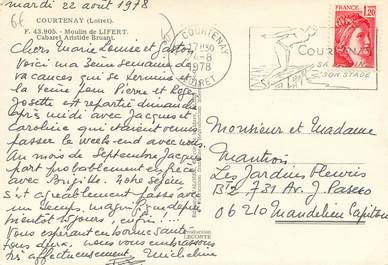 mardi 22 août 1978
66
COURTENAY (Loiret).
F. 43.905. - Moulin de LIFERT.
Cabaret Aristide Bruant.
Chers Marie Louise et Gaston
Voici ma 3ème semaine de
vacances qui se termine et
la 4ème Jean Pierre et Roger
Josette est repartie dimanche
après midi avec Jacques et
Caroline qui étaient venus
passer le week-end avec nous.
Au mois de Septembre Jacques
part probablement en Grèce
avec Brigitte. Notre séjour
s'est agréablement passé avec
un temps magnifique depuis
bientôt 15 jours, enfin !...
Vous espérant en bonne santé
tous deux, nous vous embrassons
très affectueusement. Micheline
COURTENAY
17H30
-8
1978
LOIRET
COURTENAY
SA PISCINE
SON STADE
REPUBLIQUE FRANÇAISE
1,20
POSTES
Monsieur et Madame
Mantion
Les Jardins Fleuris
Bt 2 731 Av. J. Passero
06210 Mandelieu Capitou
LECONTE